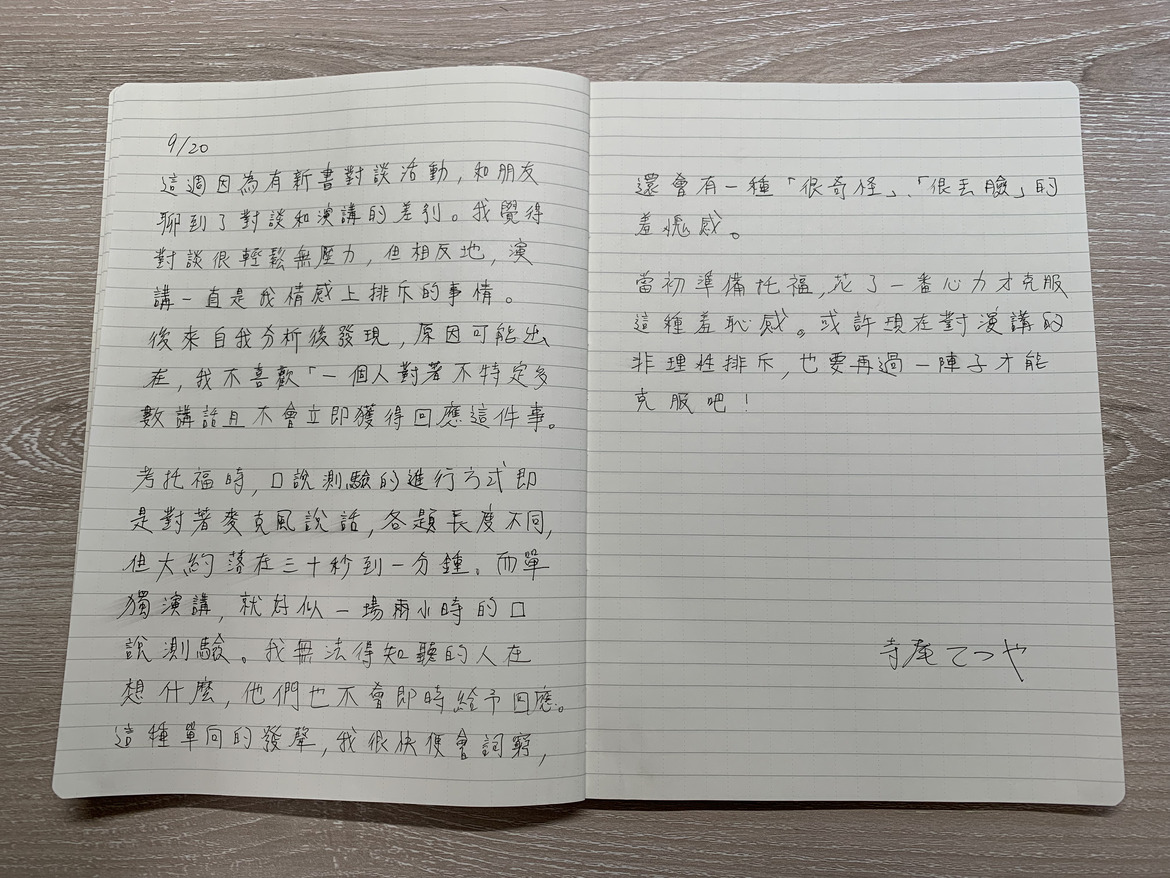 9/20
這週因為有新書對談活動,和朋友
聊到了對談和演講的差別。我覺得
對談很輕鬆無壓力,但相反地,演
講一直是我情感上排斥的事情。
後來自我分析後發現,原因可能出
在,我不喜歡「一個人對著不特定多
數講話且不會立即獲得回應這件事。
考托福時,口說測驗的進行方式即
是對著麥克風說話,各題長度不同,
但大約落在三十秒到一分鐘。而單
獨演講,就好似一場兩小時的口
說測驗。我無法得知聽的人在
想什麼,他們也不會即時給予回應。
這種單向的發聲,我很快便會詞窮,
還會有一種「很奇怪」、「很丟臉」的
羞愧感。
當初準備托福,花了一番心力才克服
這種羞恥感。或許現在對演講的
非理性排斥,也要再過一陣子才能
克服吧!
寺尾てつや